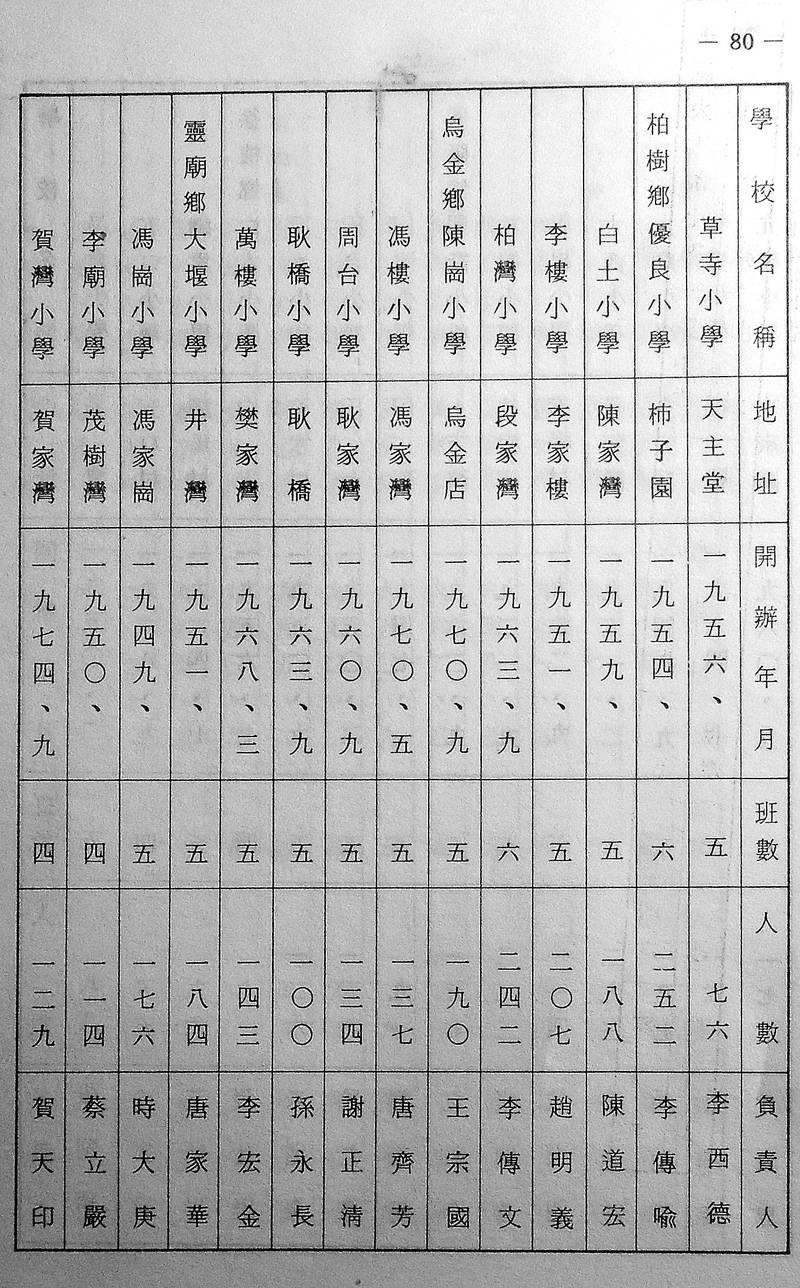 — 80 —
學校名稱 地址 開辦年月 班數 人數 負責人
草寺小學 天主堂 一九五六、 五 七六 李西德
柏樹鄉優良小學 柿子園 一九五四、九 六 二五二 李傳喩
白土小學 陳家灣 一九五九、 五 一八八 陳道宏
李樓小學 李家樓 一九五一、九 五 二〇七 趙明義
柏灣小學 段家灣 一九六三、九 六 二四二 李傳文
烏金鄉陳崗小學 烏金店 一九七〇、九 五 一九〇 王宗國
馮樓小學 馮家灣 一九七〇、五 五 一三七 唐齊芳
周台小學 耿家灣 一九六〇、九 五 一三四 謝正清
耿橋小學 耿橋 一九六三、九 五 一〇〇 孫永長
萬樓小學 樊家灣 一九六八、三 五 一四三 李宏金
靈廟鄉大堰小學 井灣 一九五一、 五 一八四 唐家華
馮崗小學 馮家崗 一九四九、 五 一七六 時大庚
李廟小學 茂樹灣 一九五〇、 四 一一四 蔡立嚴
賀灣小學 賀家灣 一九七四、九 四 一二九 賀天印